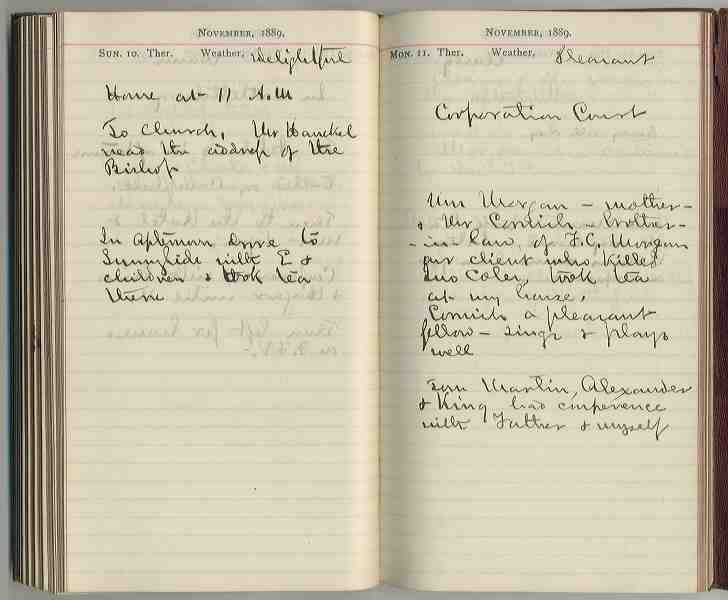 NOVEMBER, 1889.
SUN. 10. Ther. Weather, Delightful
Home at 11 A.M
To Church, Mr Hanckel
read the address of the
Bishop
In afternoon drove to
Sunnyside with E &
children & took tea
there
NOVEMBER, 1889.
MON. 11. Ther. Weather, Pleasant
Corporation Court
Mrs Morgan - mother -
& Mr Cornish - brother-
-in-law of F.C. Morgan
our client who killed
Jno Coles, took tea
at my house,
Cornish a pleasant
fellow - sings & plays
well
Martin, Alexander
& King had conference
with Father & myself